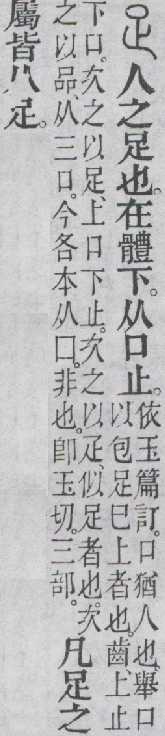 人之足也。在體下。从口止。依玉篇訂。口猶人也。舉口
以包足巳上者也。齒上止
下口。次之以足。上口下止。次之以疋。似足者也。次
之以品。从三口。今各本从囗。非也。卽玉切。三部。凡足之
屬皆从足。